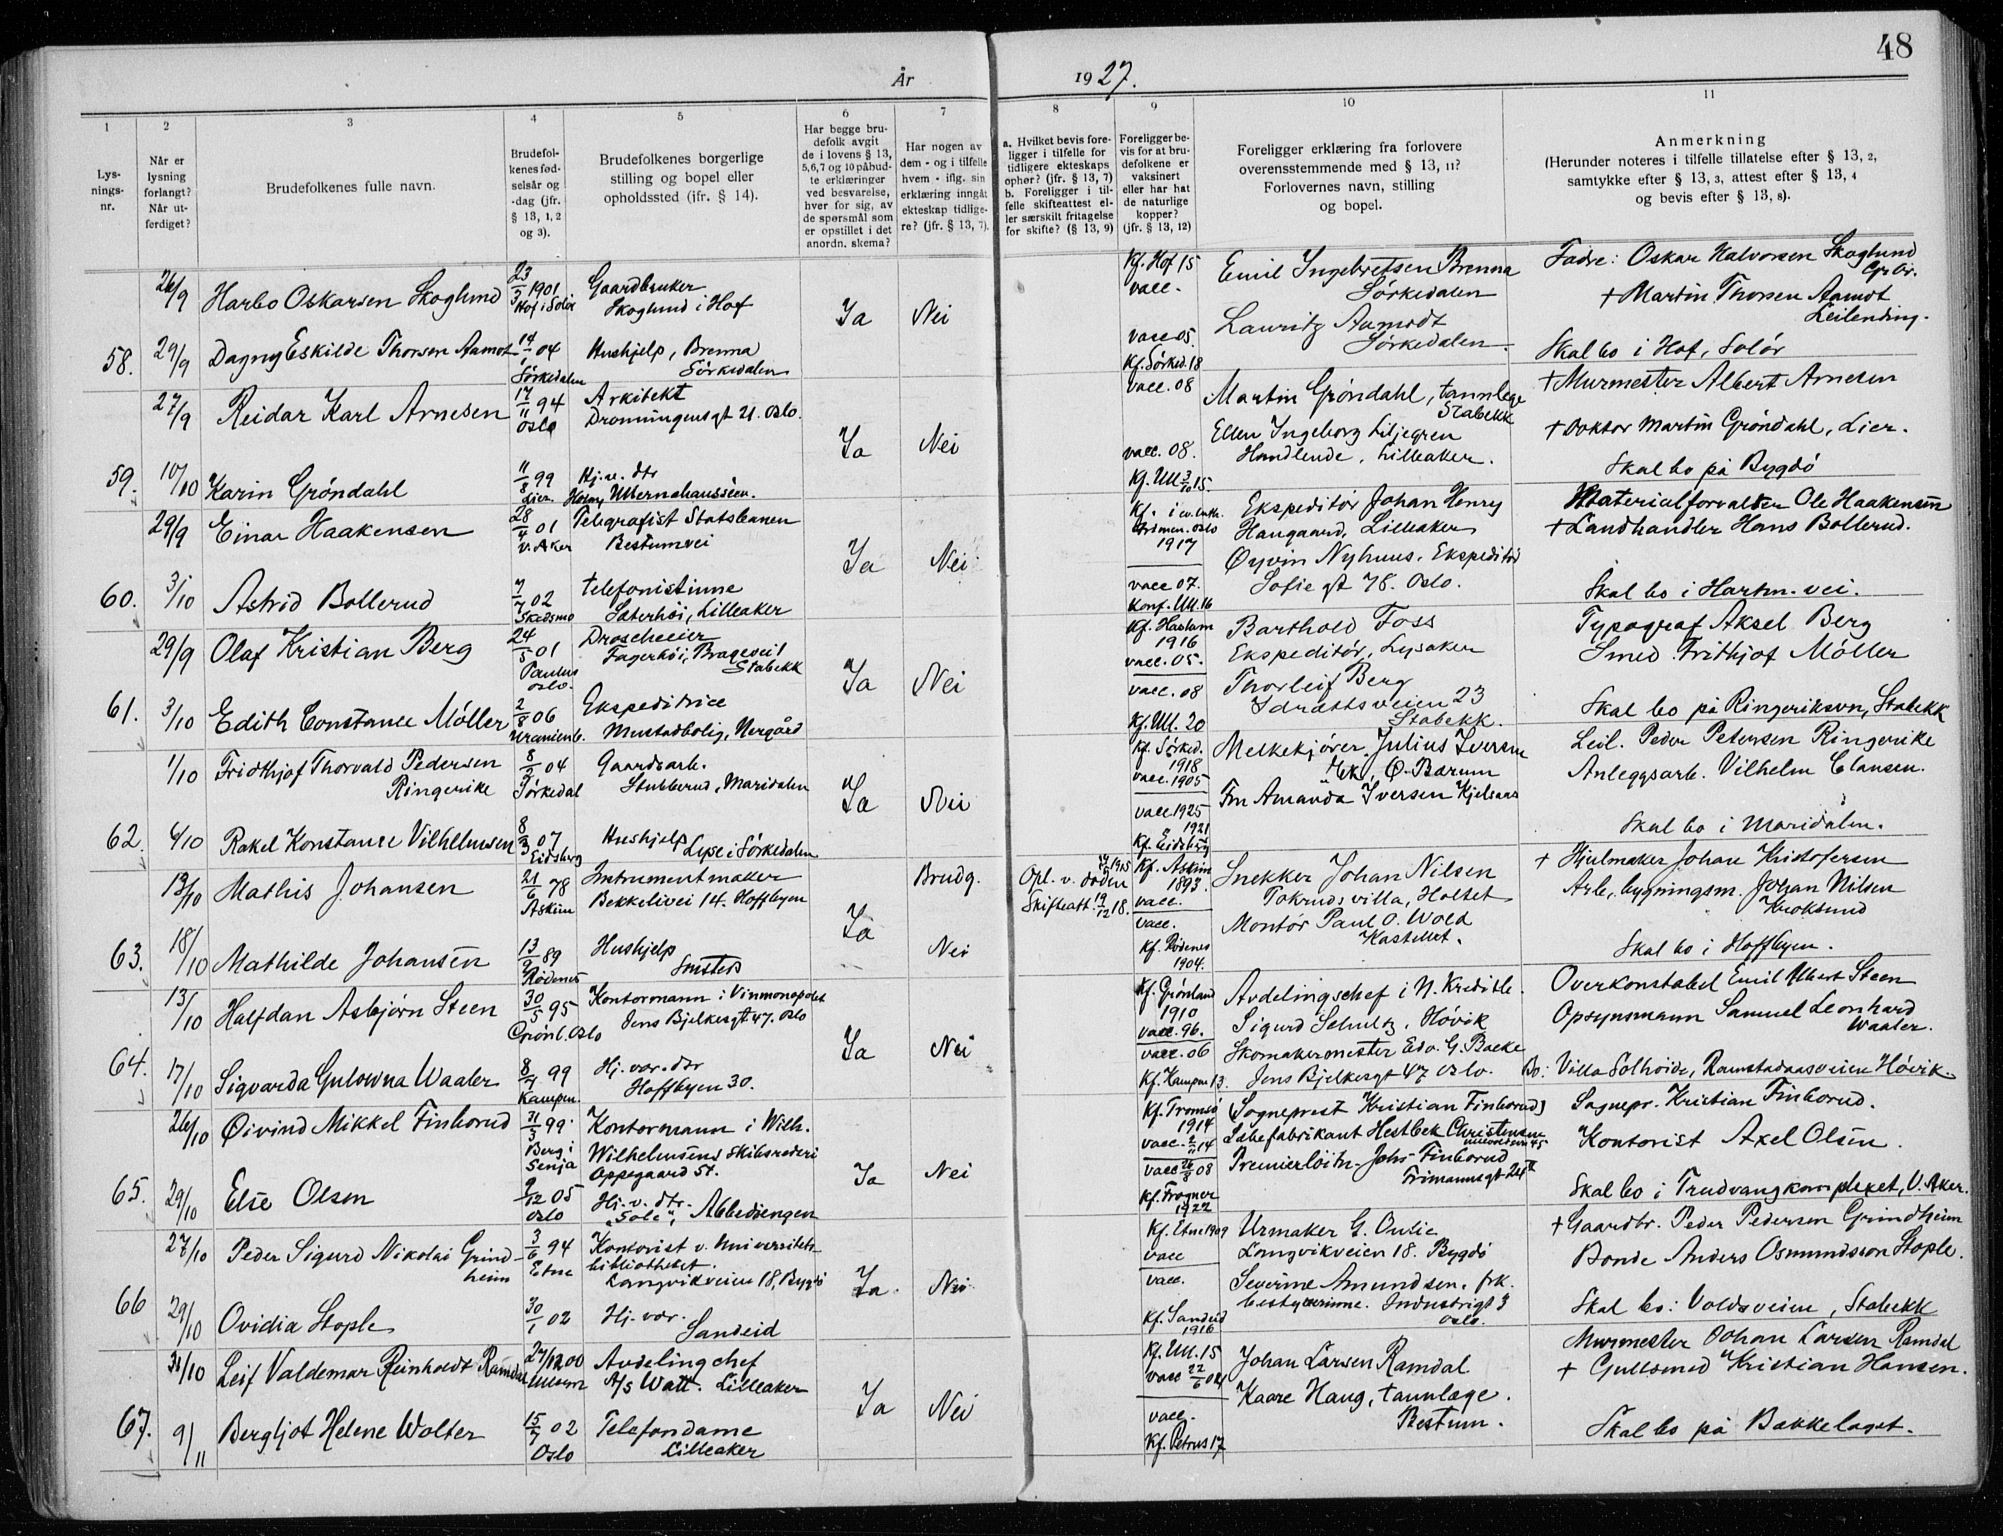 48
År 1927.
1 2 3 4 5 6 7 8 9 10 11
Lysnings-nr.
Når er lysning forlangt? Når utferdiget?
Brudefolkenes fulle navn.
Brudefolkenes fødselsår og -dag (jfr. § 13, 1, 2 og 3).
Brudefolkenes borgerlige stilling og bopel eller opholdssted (ifr. § 14).
Har begge brudefolk avgit de i lovens § 13, 5, 6, 7 og 10 påbudte erklæringer ved besvarelse, hver for sig, av de spørsmål som er opstillet i det anordn. skema?
Har nogen av dem - og i tilfelle hvem - iflg. sin erklæring inngåt ekteskap tidligere? (jfr. § 13, 7).
a. Hvilket bevis foreligger i tilfelle for tidligere ekteskaps ophør? (jfr. § 13, 7) b. Foreligger i tilfelle skifteattest eller særskilt fritagelse for skifte? (§ 13, 9)
Foreligger bevis for at brudefolkene er vaksinert eller har hat de naturlige kopper? (jfr. § 13, 12)
Foreligger erklæring fra forlovere overensstemmende med § 13, 11? Forlovernes navn, stilling og bopel.
Anmerkning (Herunder noteres i tilfelle tillatelse efter § 13, 2, samtykke efter § 13, 3, attest efter § 13, 4 og bevis efter § 13, 8).
26/9 Harbo Oskarsen Skoglund 23/3 1901 Hof i Solør Gaardbruker Skoglund i Hof Ja Nei Kf. Hof 15 vacc. Emil Ingebretsen Brenna Sørkedalen Fadre: Oskar Halvorsen Skoglund Grbr.
† Martin Thorsen Aamot Leilending.
58. 29/9 Dagny Eskilde Thorsen Aamot 04 Sørkedalen Hushjelp, Brenna Sørkedalen vacc 05. Kf. Sørked. 18 Lauritz Aamodt Sørkedalen. Skal bo i Hof, Solør
27/9 Reidar Karl Arnesen 17/11 94 Oslo Arkitekt Dronningensgt 21. Oslo. Ja Nei vacc. 08 Martin Grøndahl, tannlege Stabekk † Murmester Albert Arnesen
† Doktor Martin Grøndahl, Lier.
59. 10/10 Karin Grøndahl 11/8 99 Lier. Hj.v. dtr vacc. 08. Kf. Ull 3/10 15. Ellen Ingeborg Liljegren Handlende, Lilleaker. Skal bo på Bygdø
29/9 Einar Haakensen 28/4 01 V. Aker Telegrafist Statsbanen Bestumvei Ja Nei Kf. i Oslo 1917 Ekspeditør Johan Henry Haugaard, Lilleaker Materialforvalter Ole Haakensen
† Landhandler Hans Bollerud.
60. 3/10 Astrid Bollerud 7/7 02 Skedsmo Telefonistinne Lilleaker vacc 07. Konf. Ull. 16 Øyvin Nyhuus, Ekspeditør Sofie gt 78. Oslo. Skal bo i Hartm. vei.
29/9 Olaf Kristian Berg 24/5 01 Paulus Oslo. Droscheeier Fagerhøi, Brageveil Stabekk Ja Nei Kf. Haslum 1916 vacc. 05. Barthold Foss Ekspeditør, Lysaker Typograf Aksel Berg
Smed Frithjof Møller
61. 3/10 Edith Constance Møller 2/8 06 Uranienb. Ekspeditrice Mustadbolig, Nergård vacc. 08 Kf. Ull. 20 Thorleif Berg Idrættsveien 23 Stabekk. Skal bo på Ringeriksvn, Stabekk
1/10 Fridthjof Thorvald Pedersen Ringerike 8/2 04 Sørkedal Gaardsarb. Stubberud, Maridalen Ja Nei Kf. Sørked. 1918 vacc. 1905 Melkekjører Julius Iversen Ø. Bærum Leil. Peder Petersen Ringerike
Anleggsarb. Vilhelm Clausen.
62. 6/10 Rakel Konstance Vilhelmsen 8/3 07 Eidsberg Hushjelp Lyse i Sørkedalen vacc 1925 Kf. Eidsberg 1921 Fru Amanda Iversen Kjelsaas Skal bo i Maridalen.
13/10 Mathis Johansen 21/6 78 Askim Instrumentmaker Bekkelivei 14. Hoffbyen Ja Brudg. Opl. v. døden 1915 Skifteatt. 19/12 18. Kf. Askim 1893. vacc. Snekker Johan Nilsen Tokrudsvilla, Holtet † Hjulmaker Johan Kristofersen
Arb., bygningsm. Johan Nilsen Kroksund
63. 18/10 Mathilde Johansen 13/9 89 Rødenes Hushjelp Nei vacc. Kf. Rødenes 1904. Montør Paul O. Wold Kastellet. Skal bo i Hoffbyen.
13/10 Halfdan Asbjørn Steen 30/5 95 Grønl. Oslo Kontormann i Vinmonopolet Jens Bjelkesgt 47. Oslo Ja Nei Kf. Grønland 1910 vacc. 96. Avdelingschef i N. Kreditb. Sigurd Schultz, Høvik Overkonstabel Emil Albert Steen
Opsynsmann Samuel Leonhard Waaler.
64. 17/10 Sigvarda Gulowna Waaler 8/7 99 Kampen. Hj. vær. dtr Hoffbyen 30. vacc. 06 Kf. Kampen 13. Skomakermester Edv. G. Bakke Jens Bjelkesgt 47 Oslo. Bo: Villa Solhöide, Ramstadaasveien Høvik.
26/10 Øivind Mikkel Finborud 31/3 99 Berg i Senja Kontormann i Wilh. Wilhelmsens Skibsrederi Oppegaard St. Ja Nei Kf. Tromsø 1914 vacc. 14 (Sogneprest Kristian Finborud) Hestbek Christensen Sognepr. Kristian Finborud.
Kontorist Axel Olsen.
65. 29/10 Else Olsen 9/12 05 Oslo Hj. v. dtr. "Sole", Abbediengen vacc 08 Kf. Frogner 1922 Premierløitn. Johs Finborud Frimannsgt Skal bo i Trudvangkomplexet, V. Aker.
27/10 Peder Sigurd Nikolai Grindheim 3/6 94 Etne Kontorist v. Universitetsbibliotheket. Langvikveien 18, Bygdø Ja. Nei Kf. Etne 1909 vacc Urmaker G. Langvikveien 18. Bygdø † Gaardbr. Peder Pedersen Grindheim
Bonde Anders Osmundsson Stople.
66 29/10 Ovidia Stople 30/1 02 Hj. vær. Sandeid vacc. Kf. Sandeid 1916 Severine Amundsen, frk. bestyrerinne. Industrigt 3 Oslo. Skal bo: Voldsveien, Stabekk
31/10 Leif Valdemar Reinholdt Ramdal 27/12 00 Ullern Avdelingchef A/S Watt. Lilleaker Ja Nei Kf. Ull. 15 vacc 22/6 04 Johan Larsen Ramdal Murmester Johan Larsen Ramdal
† Gullsmed Kristian Hansen.
67. 9/11 Bergljot Helene Wolter 15/7 02 Oslo Telefondame Lilleaker vacc. Kf. Petrus 17 Kaare Haug, tannlæge. Bestum. Skal bo på Bækkelaget.